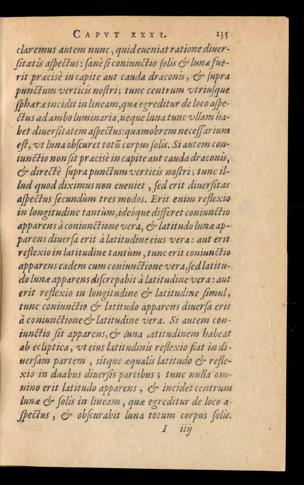 CAPVT XXXI. 135
claremus autem nunc, quid eueniat ratione diuer-
sitatis aspectus: sanè si coniunctio solis & lunæ fue-
rit præcisè in capite aut cauda draconis, & supra
punctum verticis nostri; tunc centrum vtriusque
sphæræ incidit in lineam, quæ egreditur de loco aspe-
ctus ad ambo luminaria, neque luna tunc vllam ha-
bet diuersitatem aspectus: quamobrem necessarium
est, vt luna obscuret totũ corpus solis. Si autem con-
iunctio non sit præcisè in capite aut cauda draconis,
& directè supra punctum verticis nostri; tunc il-
lud quod diximus non eueniet, sed erit diuersitas
aspectus secundùm tres modos. Erit enim reflexio
in longitudine tantùm, ideóque differet coniunctio
apparens à coniunctione vera, & latitudo lunæ ap-
parens diuersa erit à latitudine eius vera: aut erit
reflexio in latitudine tantùm, tunc erit coniunctio
apparens eadem cum coniunctione vera, sed latitu-
do lunæ apparens discrepabit à latitudine vera: aut
erit reflexio in longitudine & latitudine simul,
tunc coniunctio & latitudo apparens diuersa erit
à coniunctione & latitudine vera. Si autem con-
iunctio sit apparens, & luna latitudinem habeat
ab ecliptica, vt eius latitudinis reflexio fiat in di-
uersam partem, sitque æqualis latitudo & refle-
xio in duabus diuersis partibus; tunc nulla om-
nino erit latitudo apparens, & incidet centrum
lunæ & solis in lineam, quæ egreditur de loco a-
spectus, & obscurabit luna totum corpus solis.
I iiij